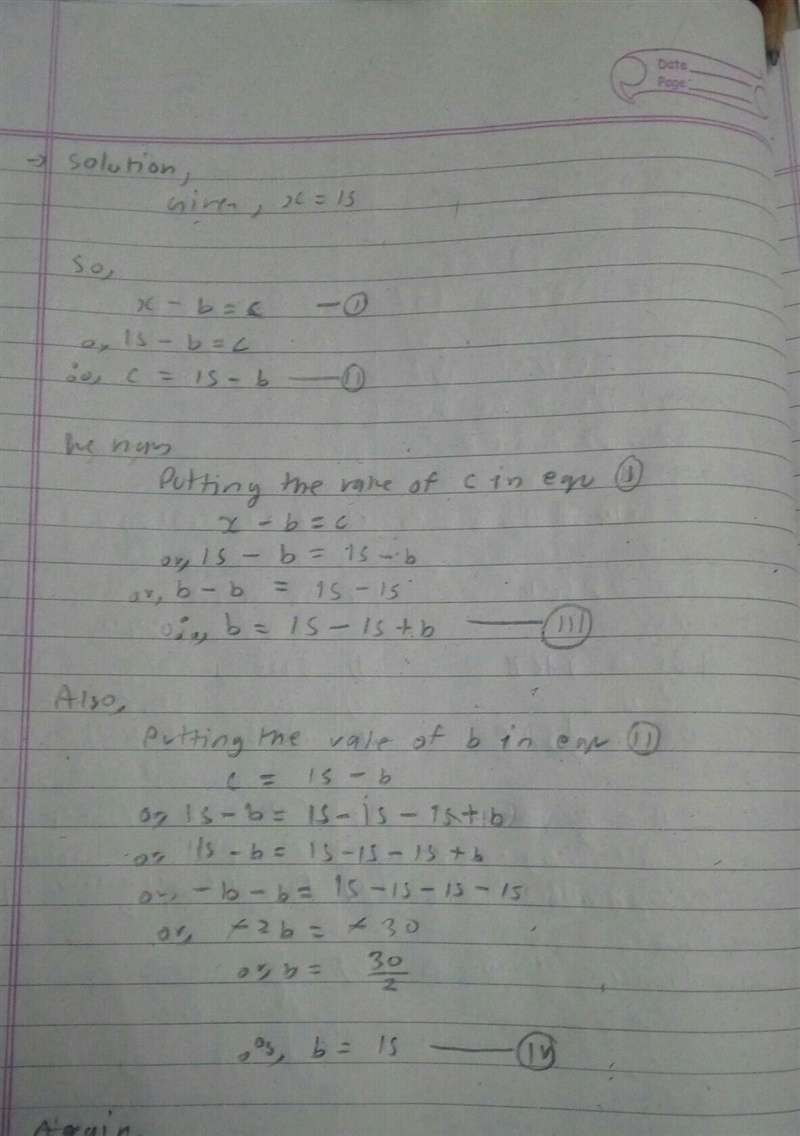 Date
Page:
→ Solution,
Given, x = 15
So,
x - b = c — (I)
or, 15 - b = c
∴ c = 15 - b — (II)
Putting the vale of c in eqn (I)
x - b = c
or, 15 - b = 15 - b
or, b - b = 15 - 15
b = 15 - 15 + b — (III)
Also,
Putting the vale of b in eqn (II)
c = 15 - b
or, 15 - b = 15 - 15 - 15 + b
or, 15 - b = 15 - 15 - 15 + b
or, - b - b = 15 - 15 - 15 - 15
or, -2b = -30
or, b = 30/2
so, b = 15 — (IV)
Again,